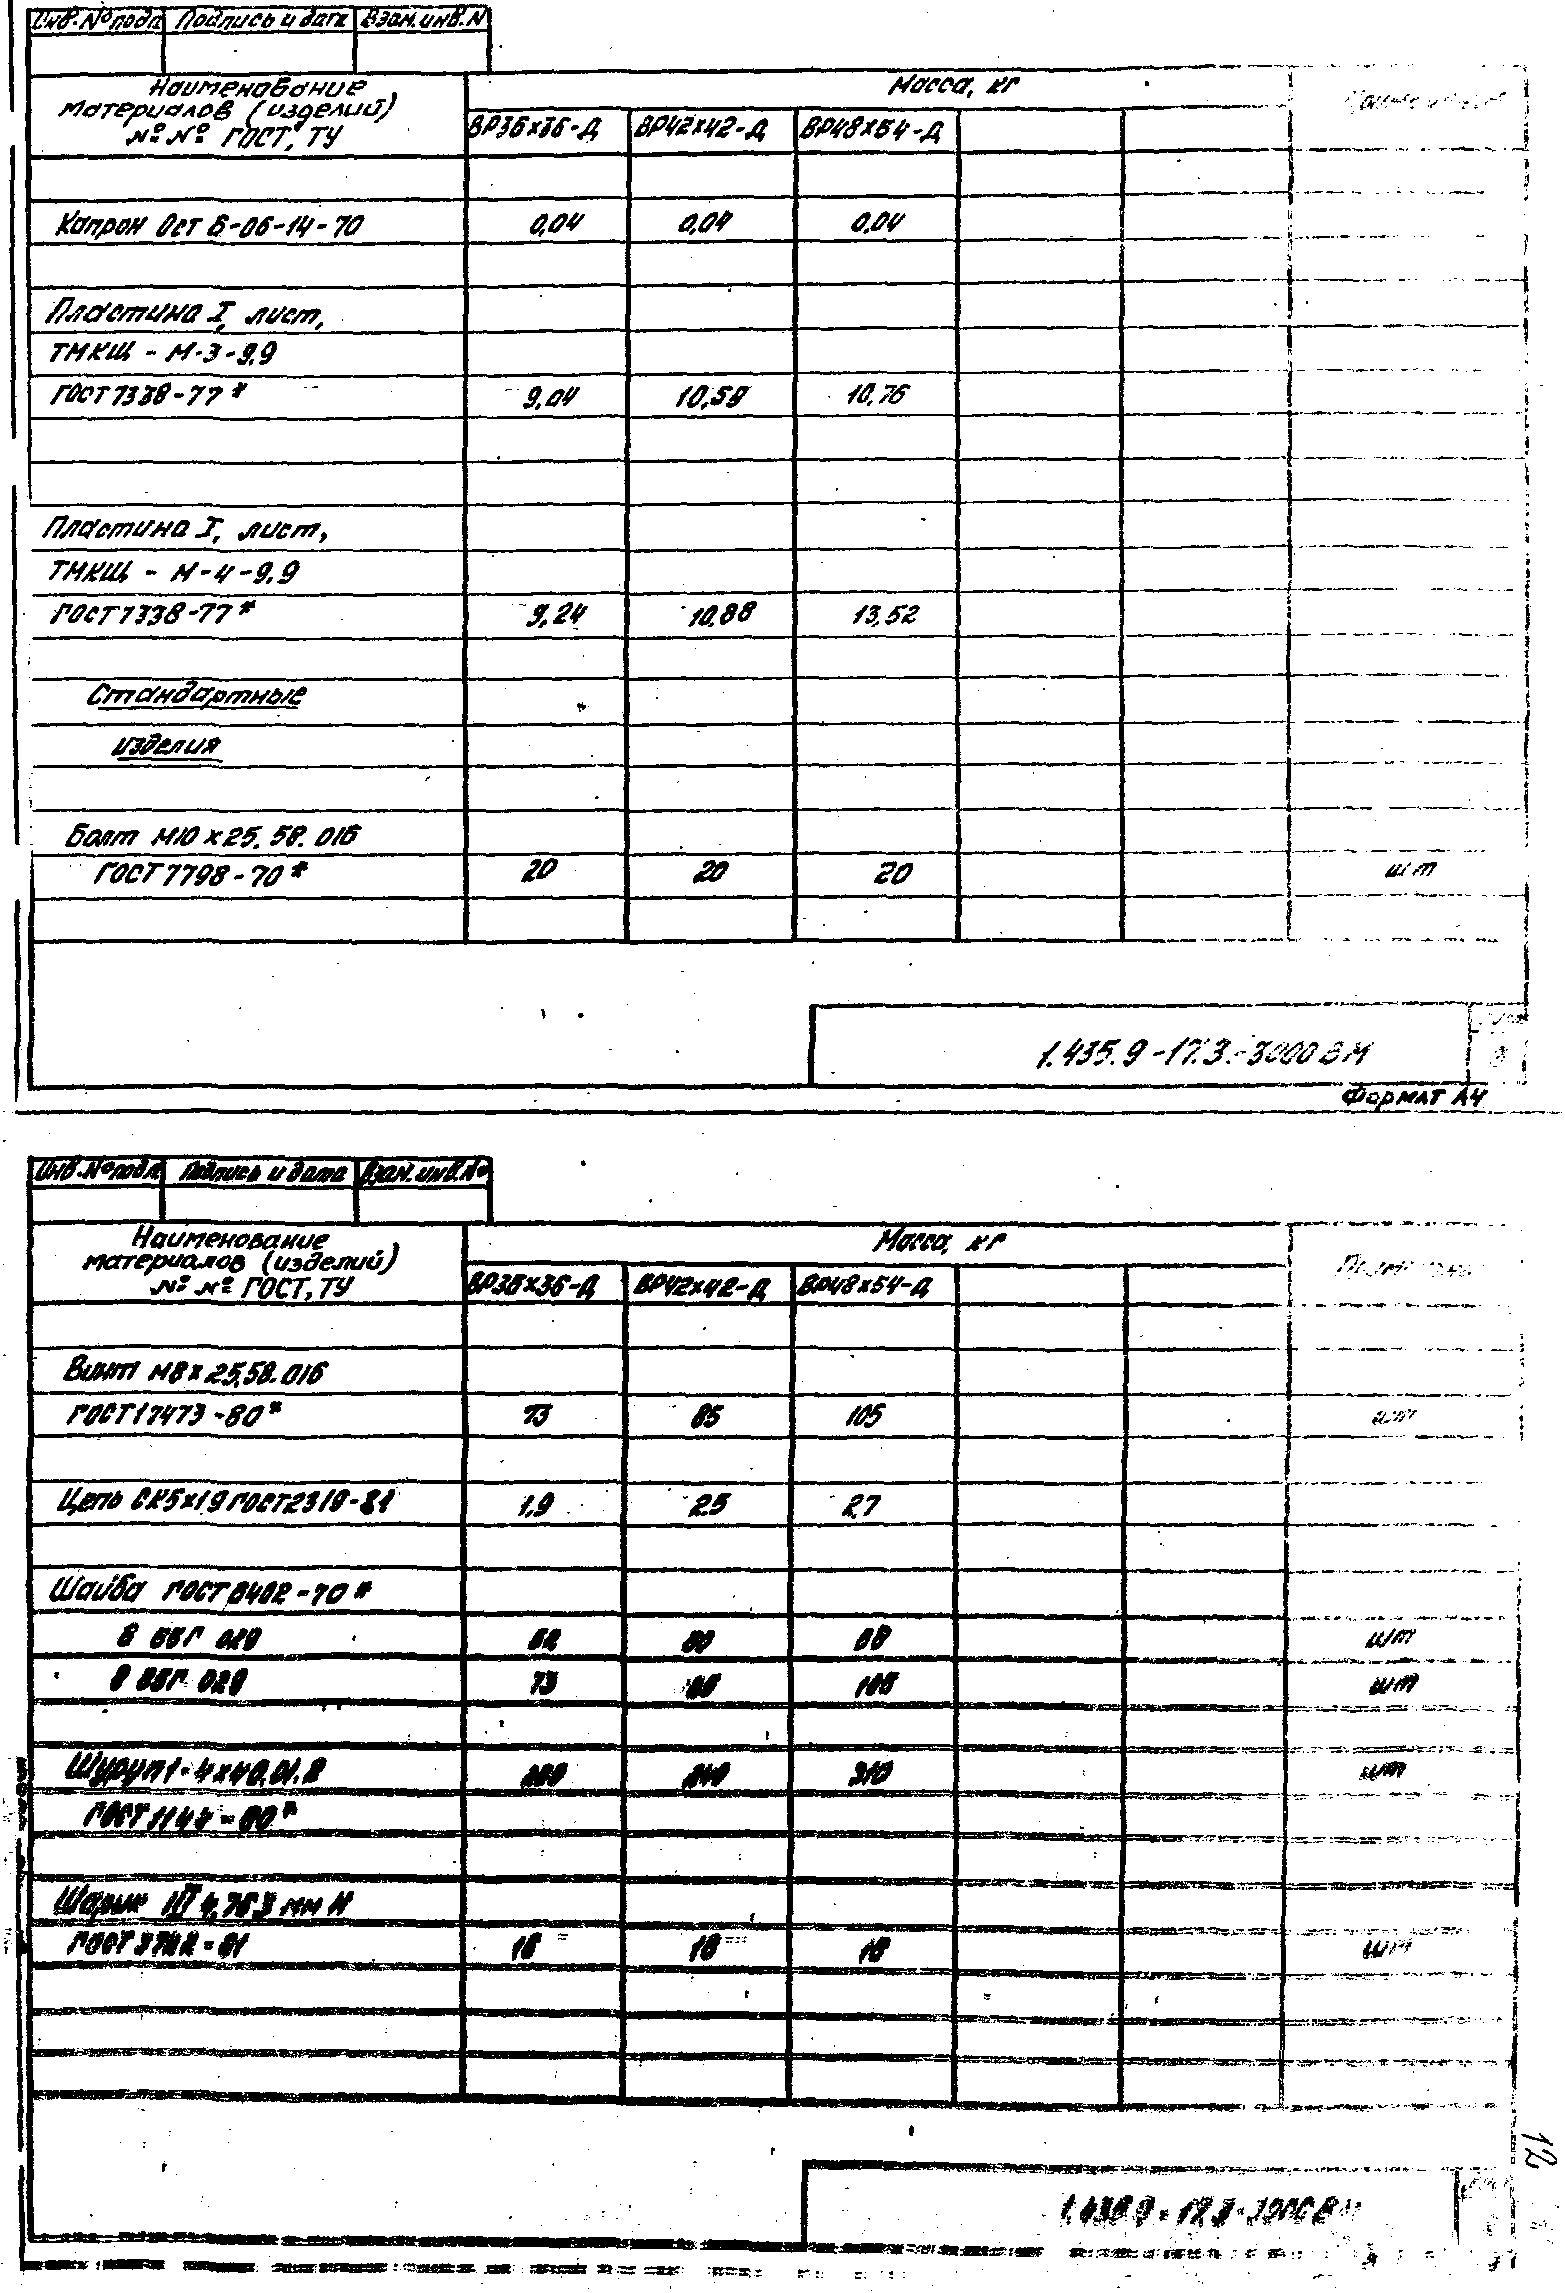 Инв. № подл Подпись и дата Взам. инв. N
Наименование
материалов (изделий)
№ № ГОСТ, ТУ
Масса, кг
ВР36х36-Д ВР42х42-Д ВР48х54-Д
Капрон Ост 6-06-14-70 0,04 0,04 0,04
Пластина I, лист,
ТМКЩ - М-3-9,9
ГОСТ 7338-77* 9,04 10,59 10,76
Пластина I, лист,
ТМКЩ - М-4-9,9
ГОСТ 7338-77* 9,24 10,88 13,52
Стандартные
изделия
Болт М10 х 25. 58. 016
ГОСТ 7798-70* 20 20 20 шт
1.435.9-17.3-3000 ВМ
Формат А4
Инв. № подл Подпись и дата Взам. инв. №
Наименование
материалов (изделий)
№ № ГОСТ, ТУ
Масса, кг
ВР36х36-Д ВР42х42-Д ВР48х54-Д
Винт М8х25.58.016
ГОСТ 17473-80* 73 85 105 шт
Цепь СК5х19 ГОСТ 2319-81 1,9 2,5 2,7
Шайба ГОСТ 6402-70*
65Г 029 шт
8 65Г 029 73 85 105 шт
Шуруп 1-4х40.01. 310 шт
ГОСТ 1144-80*
Шарик 4,763 мм Н
ГОСТ 3722-81 16 16 16 шт
12